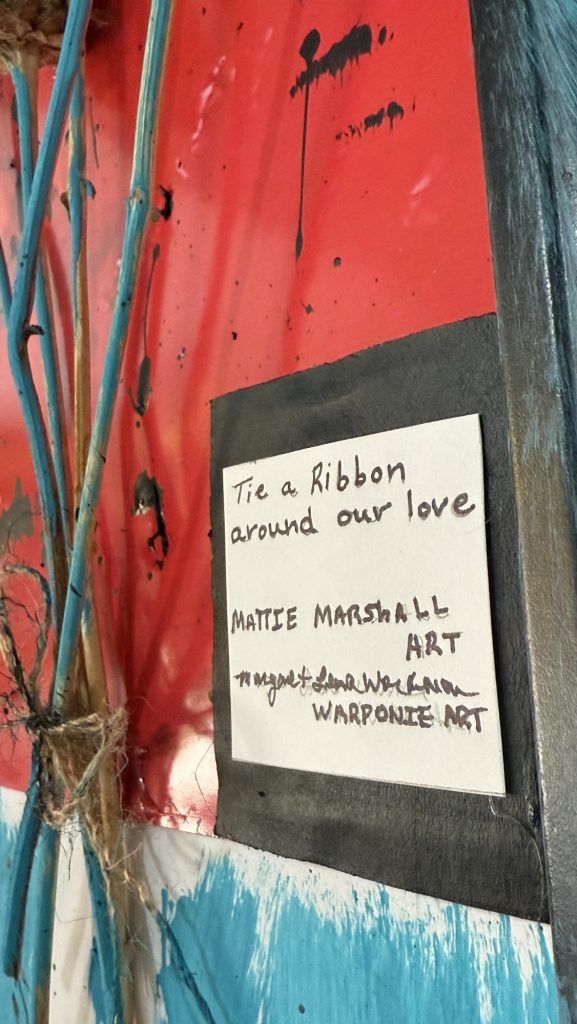 Tie a Ribbon
around our love
MATTIE MARSHALL
ART
Margaret Lena
WARPONIE ART